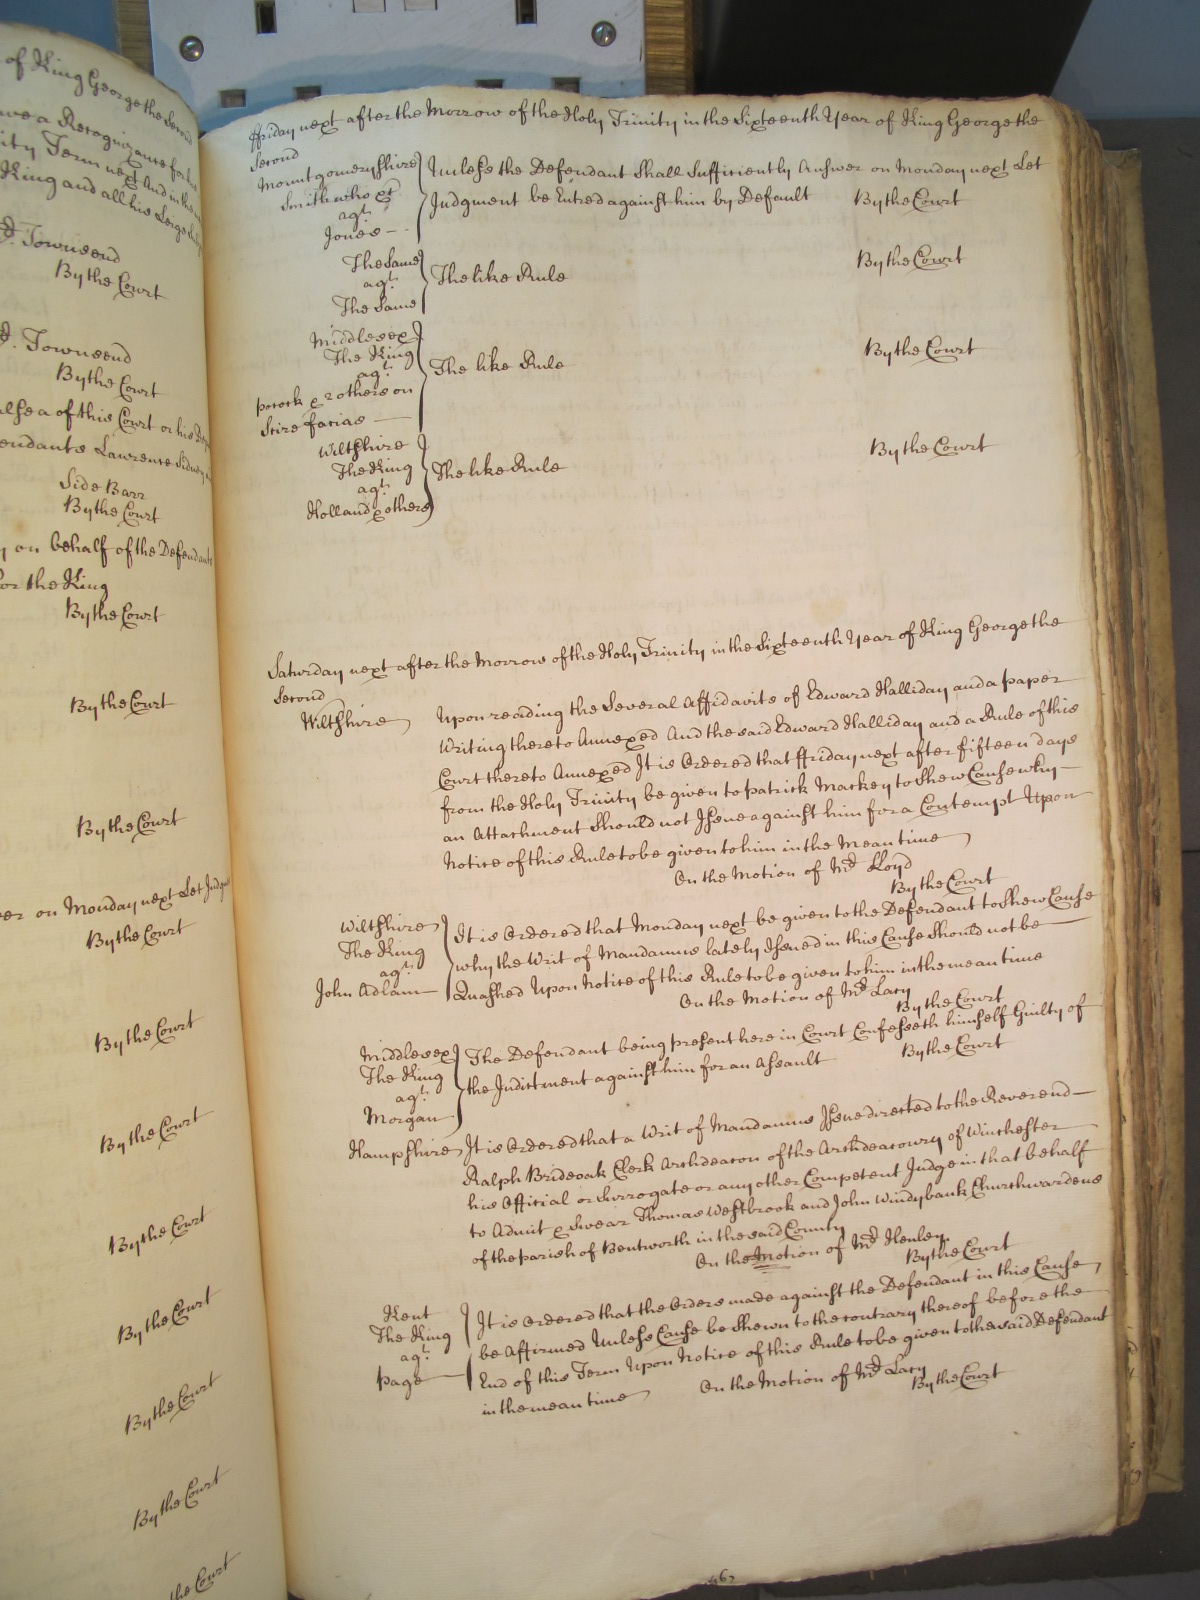 of King George the Second
ave a Recognizance for his
ity Term next And in the
King and all his Leige
Townsend
By the Court
Townsend
By the Court
alsea of this Court or his
endants Lawrence Sidney
Side Barr
By the Court
on behalf of the Defendants
for the King
By the Court
By the Court
By the Court
er on Monday next Let Judgm
By the Court
By the Court
By the Court
By the Court
By the Court
By the Court
By the Court
the Court
ffriday next after the Morrow of the Holy Trinity in the Sixteenth Year of King George the
Second
Mountgomeryshire
Smith who &c
agt.
Jones
Unless the Defendant Shall Sufficiently Answer on Monday next Let
Judgment be Entred against him by Default By the Court
The Same
agt.
The Same
The like Rule By the Court
Middlesex
The King
agt.
pocock & 2 others on
Scire facias
The like Rule By the Court
Wiltshire
The King
agt.
Holland & others
The like Rule By the Court
Saturday next after the Morrow of the Holy Trinity in the Sixteenth Year of King George the
Second
Wiltshire
Upon reading the Several Affidavits of Edward Halliday and a paper
Writing thereto Annexed And the said Edward Halliday and a Rule of this
Court thereto Annexed It is Ordered that ffriday next after fifteen days
from the Holy Trinity be given to patrick Mackey to Shew Cause why
an Attachment Should not Issue against him for a Contempt Upon
Notice of this Rule to be given to him in the Mean time
On the Motion of Mr. Lloyd
By the Court
Wiltshire
The King
agt.
John Adlam
It is Ordered that Monday next be given to the Defendant to Shew Cause
why the Writ of Mandamus lately Issued in this Cause Should not be
Quashed Upon Notice of this Rule to be given to him in the mean time
On the Motion of Mr. Lacy
By the Court
Middlesex
The King
agt.
Morgan
The Defendant being present here in Court Confesseth himself Guilty of
the Indictment against him for an Assault By the Court
Hampshire
It is Ordered that a Writ of Mandamus Issue directed to the Reverend
Ralph Brideoak Clerk Archdeacon of the Archdeaconry of Winchester
his Official or Surrogate or any other Competent Judge in that behalf
to Admit & Swear Thomas Westbrook and John Windybank Churchwardens
of the parish of Bentworth in the said County
On the Motion of Mr. Henley
By the Court
Kent
The King
agt.
Page
It is Ordered that the Orders made against the Defendant in this Cause
be Affirmed Unless Cause be Shewn to the contrary thereof before the
End of this Term Upon Notice of this Rule to be given to the said Defendant
in the mean time On the Motion of Mr. Lacy
By the Court